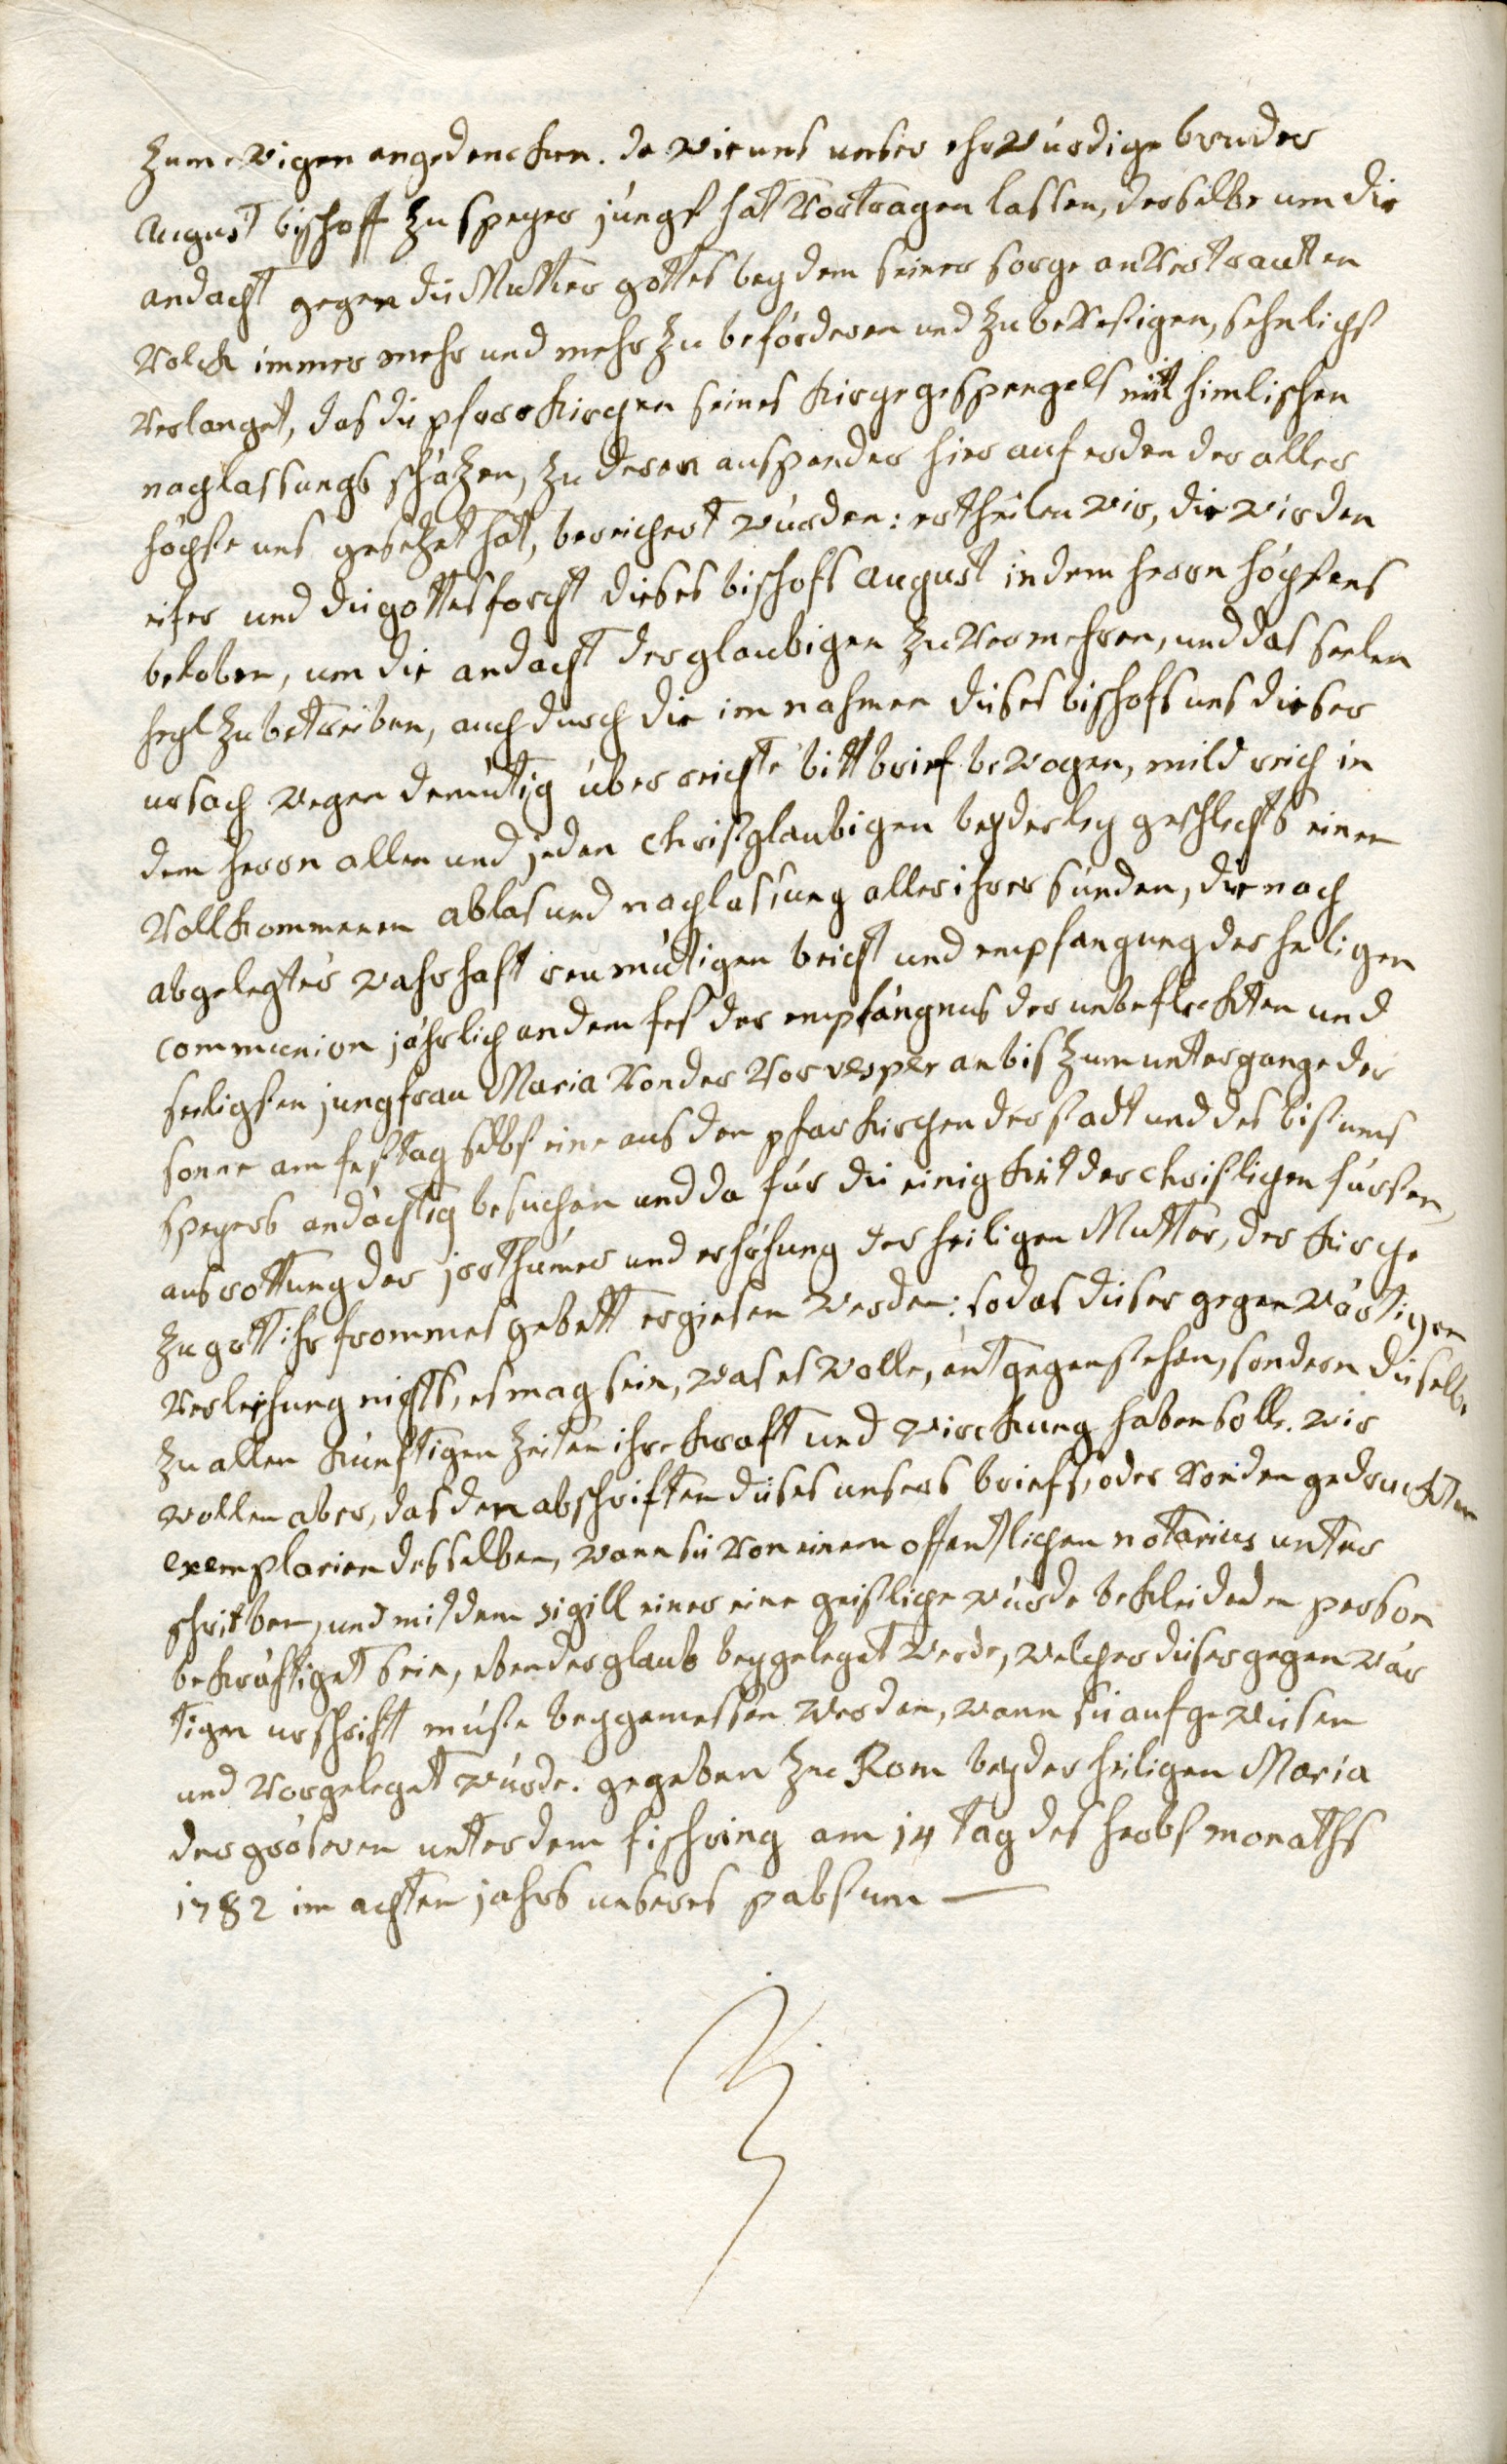 zum ewigen angedencken. da wir uns unser ehrwürdige bruder
August bischoff zu speyer jüngst hat vortragen lassen, derselbe um die
andacht gegen die Mutter gottes bey dem seiner sorge anvertrauten
volck immer mehr und mehr zu beförderen und zu bevestigen, sehnlichst
verlanget, das die pfarrkirchen seines kirchegesprengels mit himlischen
nachlassungs schätzen, zu deren ausspender hier auf erden der aller
höchste uns gesetzet hat, bereichert würden: ertheilen wir, die wir den
eifer und die gottesforcht dieses bischofs August in dem herrn höchstens
beloben, um die andacht der glaubigen zu vermehren, und das seelen
heyl zu betreiben, auch durch die im nahmen dieses bischofs uns dieser
ursach wegen demütig überreichte bittbrief bewogen, mildreich in
dem herrn allen und jeden christglaubigen beyderley geschlechts einen
vollkommenen ablas und nachlassung aller ihrer sünden, die nach
abgelegter wahrhaft reumütigen beicht und empfangung der heiligen
communion jährlich an dem fest der empfängnus der unbefleckten und
seeligsten jungfrau Maria von der vor vesper an bis zum untergange der
sonne am festtag selbst eine aus den pfarkirchen der stadt und des bistums
speyers andächtig besuchen und da für die einigkeit der christlichen fürsten,
ausrottung der jrrthümer und erhöhung der heiligen Mutter, der kirche
zu gott ihr frommes gebett ergiesen werden: so das dieser gegenwärtigen
verleihung nichts, es mag sein, was es wolle, entgegenstehen, sondern dieselbe
zu allen künftigen zeiten ihre kraft und wirckung haben solle. wir
wollen aber, das den abschriften dieses unsers briefs, oder von den gedruckten
exemplarien desselben, wann sie von einem offentlichen notarius unter
schrieben, und mit dem sigill einer eine geistliche würde bekleideden person
bekräftiget sein, eben der glaub beygeleget werde, welcher dieser gegenwär
tigen urschrift müste beygemessen werden, wann sie aufgewiesen
und vorgeleget würde. gegeben zu Rom bey der heiligen Maria
der gröseren unter dem fischring am 14 tag des herbstmonaths
1782 im achten jahrs unseres pabstum —